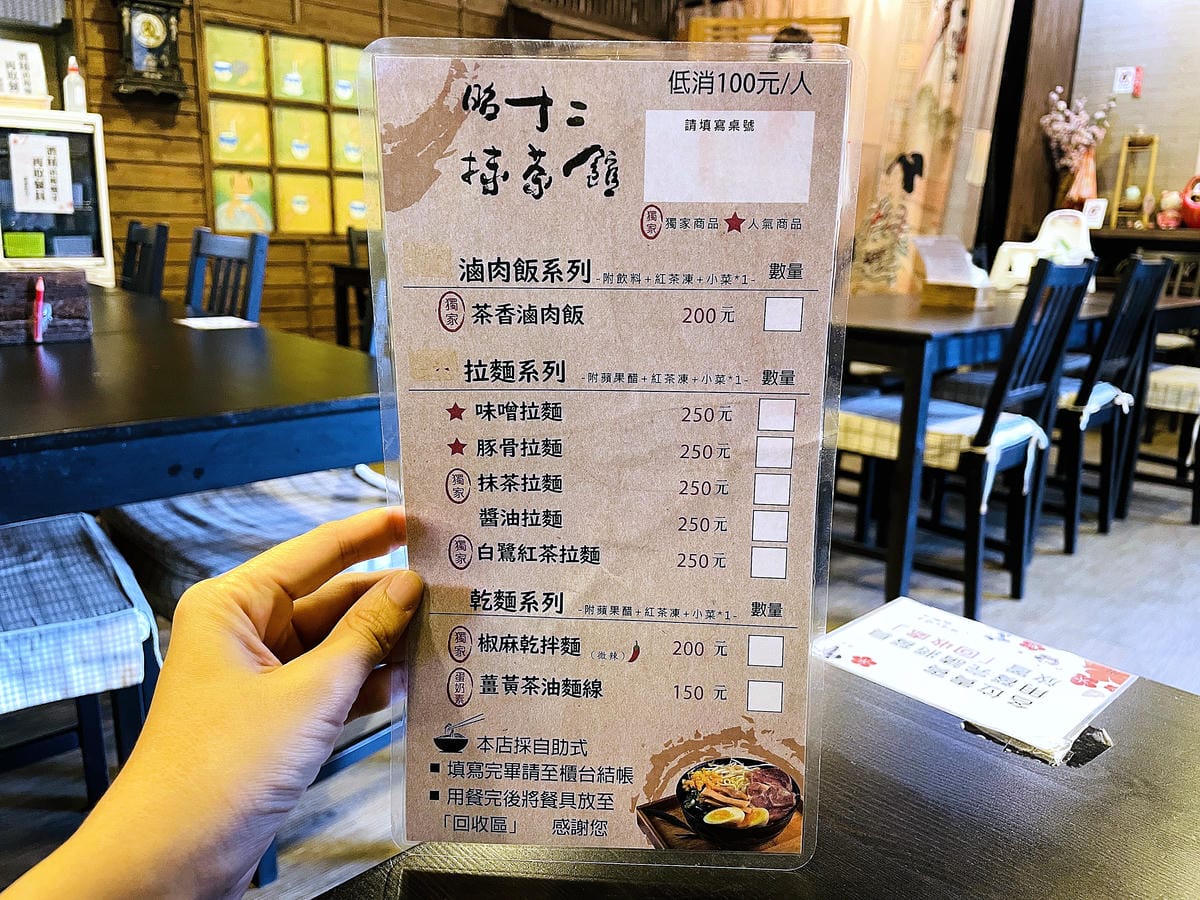 昭十二
抹茶館
低消100元/人
請填寫桌號
獨家 獨家商品 ★人氣商品
滷肉飯系列 -附飲料+紅茶凍+小菜*1- 數量
獨家 茶香滷肉飯 200元
拉麵系列 -附蘋果醋+紅茶凍+小菜*1- 數量
★ 味噌拉麵 250元
★ 豚骨拉麵 250元
獨家 抹茶拉麵 250元
醬油拉麵 250元
獨家 白鷺紅茶拉麵 250元
乾麵系列 -附蘋果醋+紅茶凍+小菜*1- 數量
獨家 椒麻乾拌麵 (微辣) 200元
蛋奶素 薑黃茶油麵線 150元
本店採自助式
■ 填寫完畢請至櫃台結帳
■ 用餐完後將餐具放至
「回收區」 感謝您
再取餐具